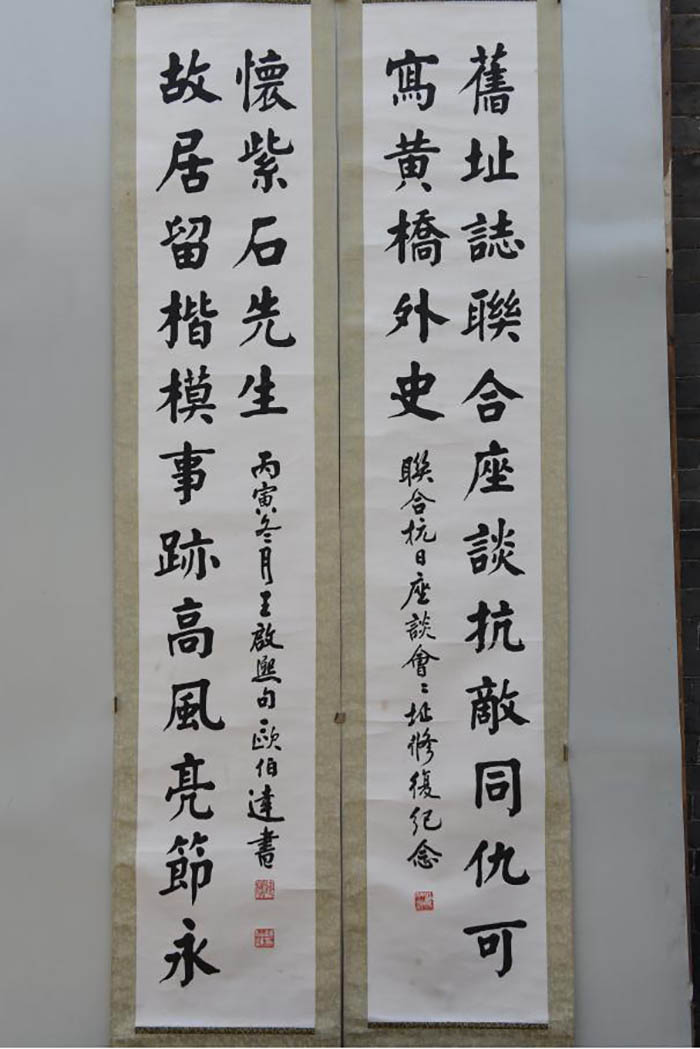 舊址誌聯合座談抗敵同仇可
寫黃橋外史
聯合抗日座談會會址修復紀念
故居留楷模事跡高風亮節永
懷紫石先生
丙寅冬月王啟熙句歐伯達書